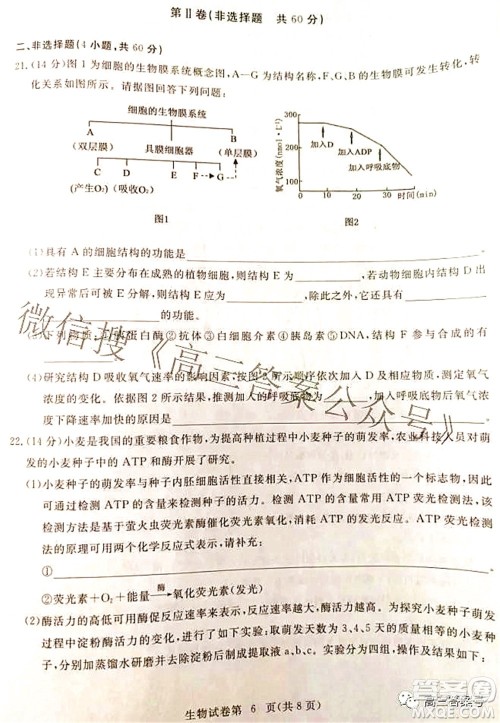 第Ⅱ卷(非选择题 共60分)
二、非选择题(4小题,共60分)
21.(14分)图1为细胞的生物膜系统概念图,A—G为结构名称,F、G、B的生物膜可发生转化,转
化关系如图所示。请据图回答下列问题:
细胞的生物膜系统
A B
(双层膜) 具膜细胞器 (单层膜)
C D E F G
(产生O₂)(吸收O₂)
图1
氧气浓度(nmol·L⁻¹)
300
200
100
0
加入D 加入ADP
加入呼吸底物
10 20 30 时间(min)
图2
(1)具有A的细胞结构的功能是
(2)若结构E主要分布在成熟的植物细胞,则结构E为 ,若动物细胞内结构D出
现异常后可被E分解,则E为 ,除此之外,它还具有
(3)下列物质, 蛋白酶②抗体③白细胞介素④胰岛素⑤DNA,结构F参与合成的有
(4)研究结构D吸收氧气速率的影响因素,按图2所示顺序依次加入D及其他成分,测定氧气
浓度的变化。依据图2所示结果,推测加入的呼吸底物为 ,加入呼吸底物后氧气浓
度下降速率加快的原因是
22.(14分)小麦是我国的重要粮食作物,为提高种植过程中小麦种子的萌发率,农业科技人员对萌
发的小麦种子中的ATP和酶开展了研究。
(1)小麦种子的萌发率与种子内胚细胞活性直接相关,ATP作为细胞活性的一个标志物,因此
可通过检测ATP的含量来检测种子的活力。检测ATP的含量常用ATP荧光检测法,该
检测法基于萤火虫荧光素酶催化荧光素氧化,消耗ATP的发光原理。ATP荧光检测法
的原理可用两个化学反应式表示,请补充:
①
②荧光素+O₂+能量 酶→氧化荧光素(发光)
(2)酶活力的高低可用酶促反应速率表示,反应速率越大,酶活力越高。为探究小麦种子萌发
过程中淀粉酶活力的变化,进行了下列实验:取萌发天数为3、4、5天的质量相等的小麦种
子,分别加蒸馏水研磨并去除淀粉后获得提取液a、b、c。实验方案及结果如下:
生物试卷第 6 页(共8页)
微信搜《高三答案公众号》
高三答案号